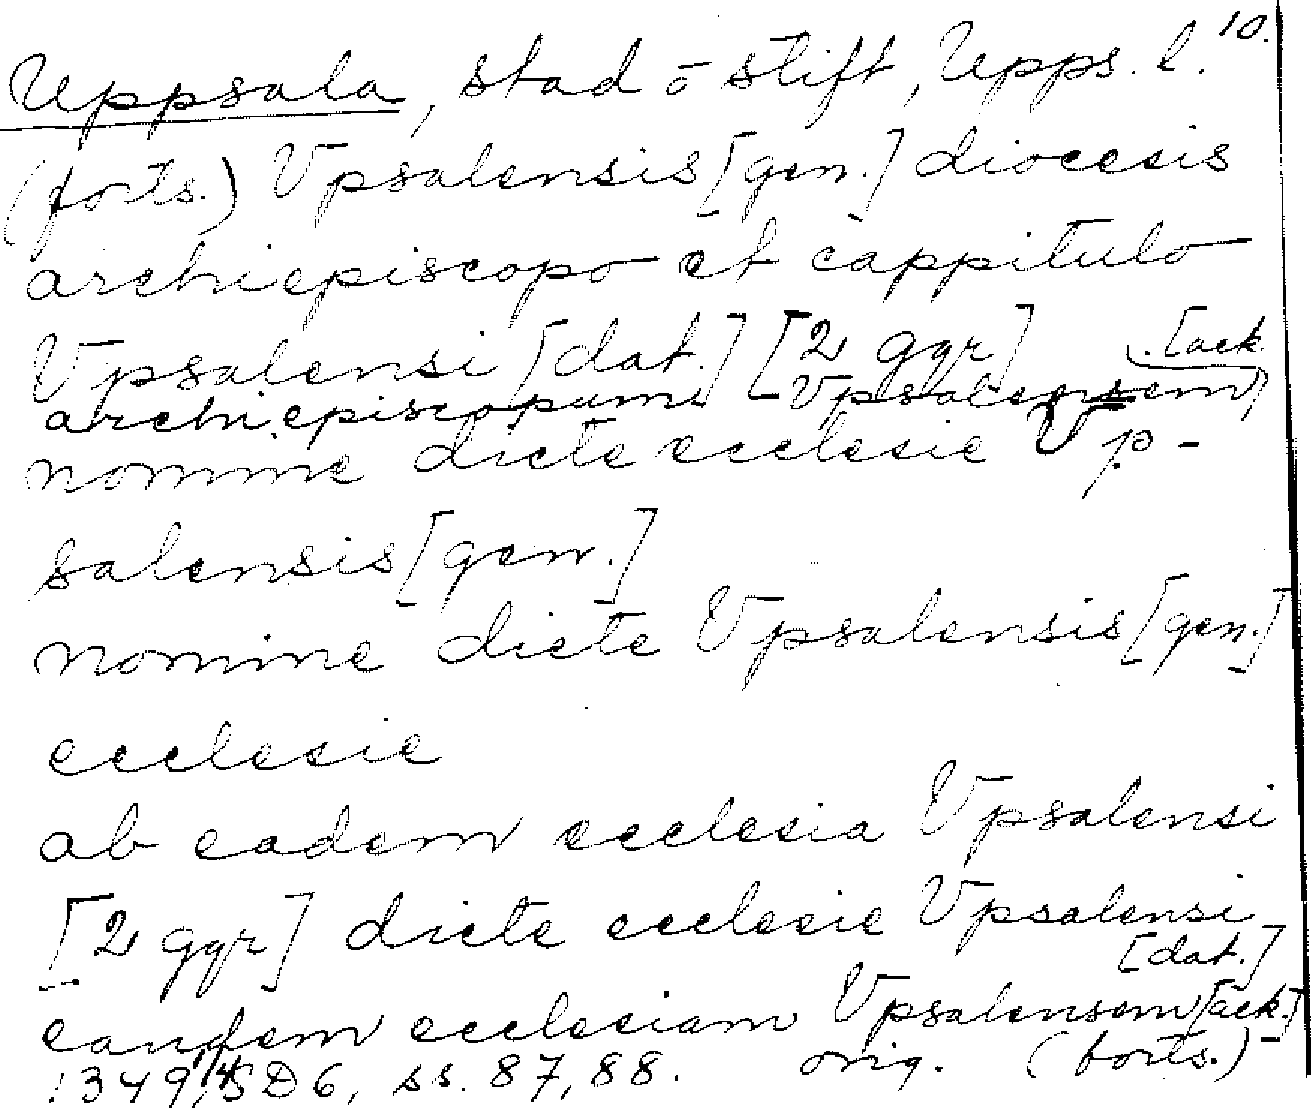 10.
Uppsala, stad o stift, Upps. l.
(forts.) Vpsalensis [gen.] diocesis
archiepiscopo et cappitulo
Vpsalensi [dat.] [2 ggr] [ack.
archiepiscopum Vpsalensem
nomine dicte ecclesie Vp-
salensis [gen.]
nomine dicte Vpsalensis [gen.]
ecclesie
ab eadem ecclesia Vpsalensi
[2 ggr] dicte ecclesie Vpsalensi
[dat.]
eandem ecclesiam Vpsalensem [ack.]
1349 SD 6, ss. 87, 88. orig. (forts.)